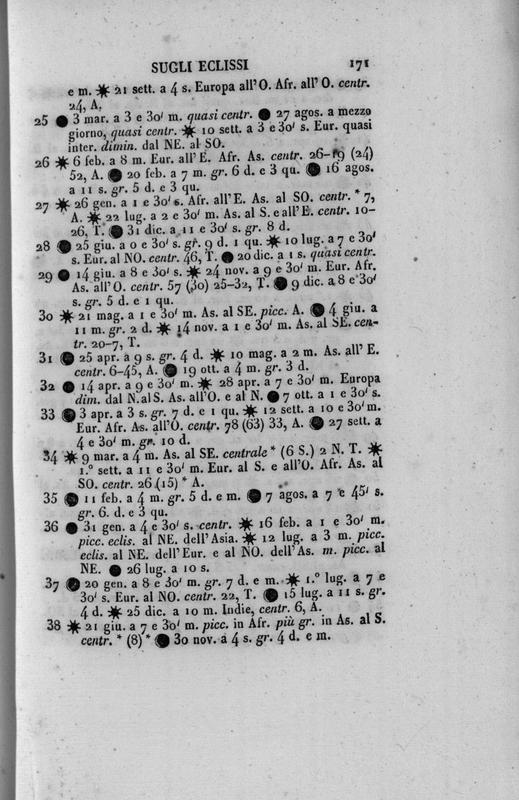 SUGLI ECLISSI 171
e m. ☀ 21 sett. a 4 s. Europa all'O. Afr. all' O. centr.
24, A.
25 ● 3 mar. a 3 e 30' m. quasi centr. ● 27 agos. a mezzo
giorno, quasi centr. ☀ 10 sett. a 3 e 30' s. Eur. quasi
inter. dimin. dal NE. al SO.
26 ☀ 6 feb. a 8 m. Eur. all' E. Afr. As. centr. 26-19 (24)
52, A. ● 20 feb. a 7 m. gr. 6 d. e 3 qu. ● 16 agos.
a 11 s. gr. 5 d. e 3 qu.
27 ☀ 26 gen. a 1 e 30' s. Afr. all' E. As. al SO. centr. * 7,
A. ☀ 22 lug. a 2 e 30' m. As. al S. e all' E. centr. 10-
26, T. ● 31 dic. a 11 e 30' s. gr. 8 d.
28 ● 25 giu. a 0 e 30' s. gr. 9 d. 1 qu. ☀ 10 lug. a 7 e 30'
s. Eur. al NO. centr. 46, T. ● 20 dic. a 1 s. quasi centr.
29 ● 14 giu. a 8 e 30' s. ☀ 24 nov. a 9 e 30' m. Eur. Afr.
As. all' O. centr. 57 (30) 25-32, T. ● 9 dic. a 8 e 30'
s. gr. 5 d. e 1 qu.
30 ☀ 21 mag. a 1 e 30' m. As. al SE. picc. A. ● 4 giu. a
11 m. gr. 2 d. ☀ 14 nov. a 1 e 30' m. As. al SE. cen-
tr. 20-7, T.
31 ● 25 apr. a 9 s. gr. 4 d. ☀ 10 mag. a 2 m. As. all' E.
centr. 6-45, A. ● 19 ott. a 4 m. gr. 3 d.
32 ● 14 apr. a 9 e 30' m. ☀ 28 apr. a 7 e 30' m. Europa
dim. dal N. al S. As. all'O. e al N. ● 7 ott. a 1 e 30' s.
33 ● 3 apr. a 3 s. gr. 7 d. e 1 qu. ☀ 12 sett. a 10 e 30' m.
Eur. Afr. As. all'O. centr. 78 (63) 33, A. ● 27 sett. a
4 e 30' m. gr. 10 d.
34 ☀ 9 mar. a 4 m. As. al SE. centrale * (6 S.) 2 N. T. ☀
1.° sett. a 11 e 30' m. Eur. al S. e all'O. Afr. As. al
SO. centr. 26 (15) * A.
35 ● 11 feb. a 4 m. gr. 5 d. e m. ● 7 agos. a 7 e 45' s.
gr. 6. d. e 3 qu.
36 ● 31 gen. a 4 e 30' s. centr. ☀ 16 feb. a 1 e 30' m.
picc. eclis. al NE. dell'Asia. ☀ 12 lug. a 3 m. picc.
eclis. al NE. dell'Eur. e al NO. dell'As. m. picc. al
NE. ● 26 lug. a 10 s.
37 ● 20 gen. a 8 e 30' m. gr. 7 d. e m. ☀ 1.° lug. a 7 e
30' s. Eur. al NO. centr. 22, T. ● 15 lug. a 11 s. gr.
4 d. ☀ 25 dic. a 10 m. Indie, centr. 6, A.
38 ☀ 21 giu. a 7 e 30' m. picc. in Afr. più gr. in As. al S.
centr. * (8) * ● 30 nov. a 4 s. gr. 4 d. e m.